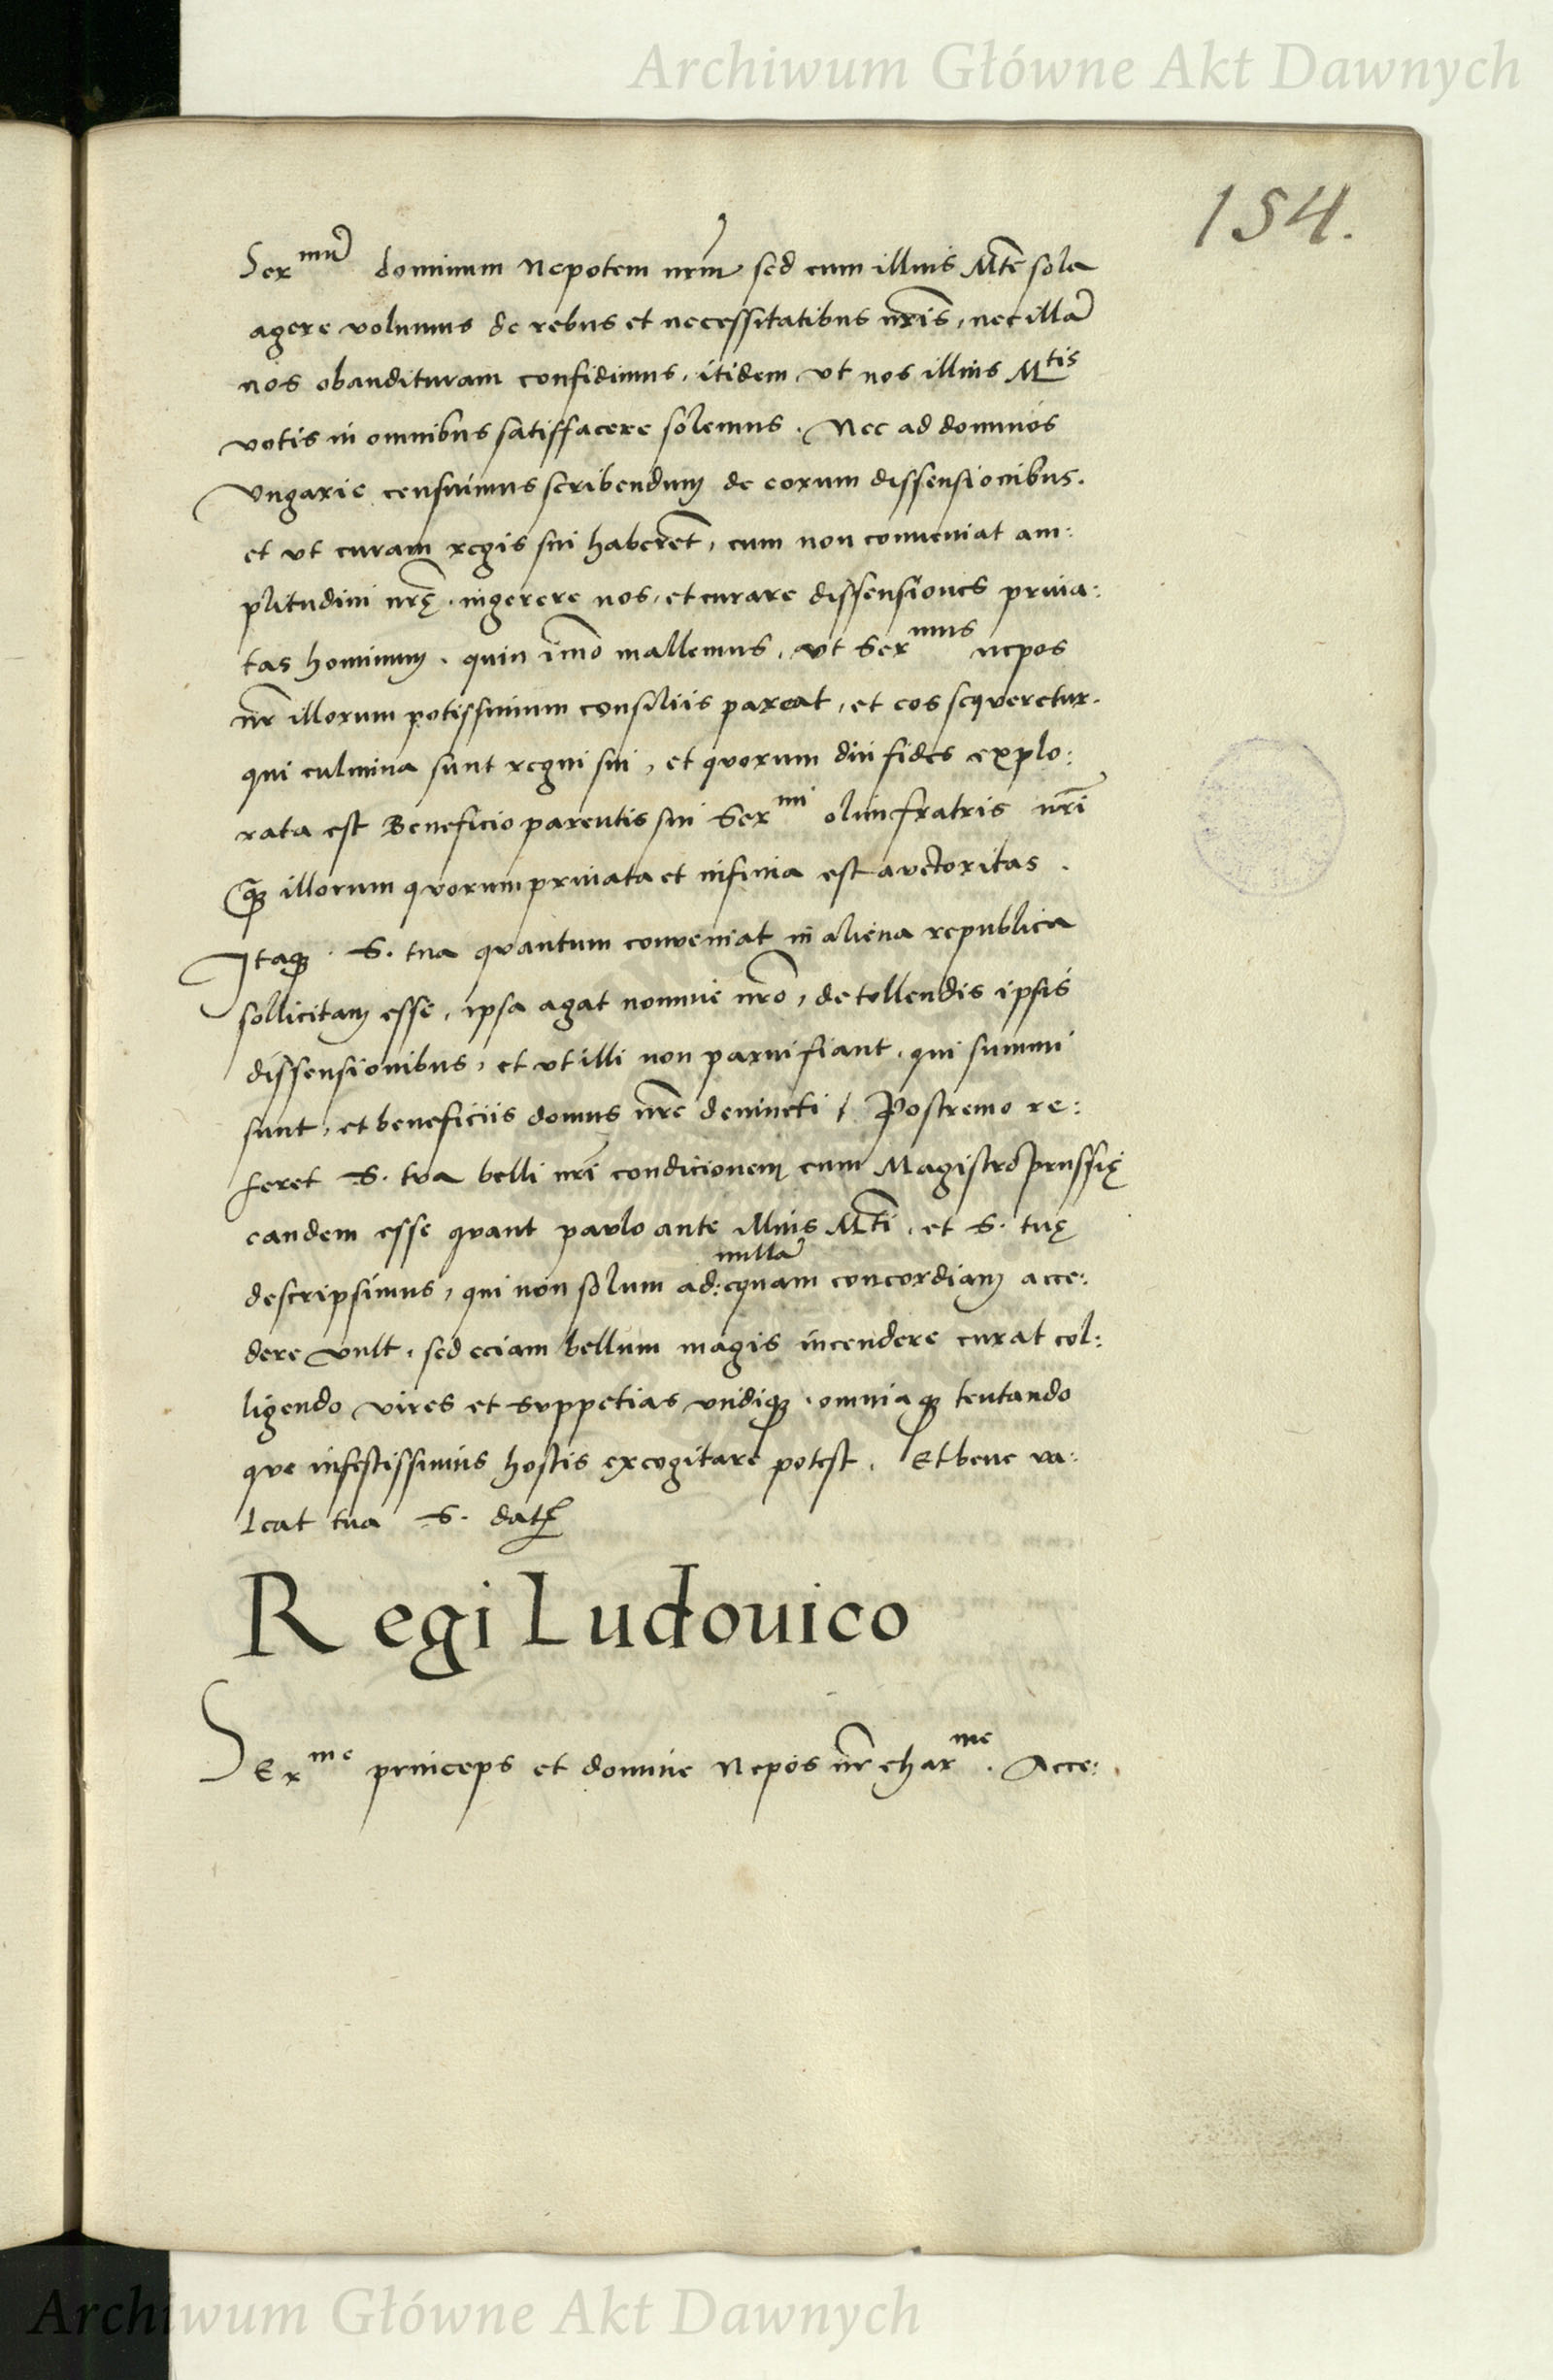 Archiwum Główne Akt Dawnych
154.
Ser^mū dominum Nepotem nr̄m sed cum illius M^te sola
agere volumus de rebus et necessitatibus nr̄is, nec illā
nos obaudituram confidimus, itidem vt nos illius M^tis
votis in omnibus satisffacere solemus. Nec ad dominos
Vngarie censuimus scribendum de eorum dissensionibus.
et vt curam regis sui haberet, cum non conueniat am:
plitudini nr̄ę ingerere nos, et curare dissensiones priua:
tas hominum. quin īmo mallemus, vt Ser^mus nepos
nr̄ illorum potissimum consiliis pareat, et eos sequeretur.
qui culmina sunt regni sui, et quorum diu fides explo:
rata est Beneficio parentis sui Ser^mi olim fratris nr̄i
Qꝫ illorum quorum priuata et infima est auctoritas.
Itaqꝫ S. tua quantum conueniat in aliena republica
sollicitam esse, ipsa agat nomine nr̄o, de tollendis ipsis
dissensionibus, et vt illi non paruifiant, qui summi
sunt, et beneficiis domus nr̄e deuincti / Postremo re:
feret S. tua belli nr̄i condicionem cum Magistro prussię
eandem esse quant paulo ante illius M^ti, et S. tuę
nullā
descripsimus, qui non solum ad: equam concordiam acce:
dere vult, sed eciam bellum magis incendere curat col:
ligendo vires et suppetias vndiqꝫ, omniaqꝫ tentando
que infestissimus hostis excogitare potest. Et bene va:
leat tua S. datꝫ
Regi Ludouico
SEr^me princeps et domine Nepos nr̄ char^me. Acce:
Archiwum Główne Akt Dawnych